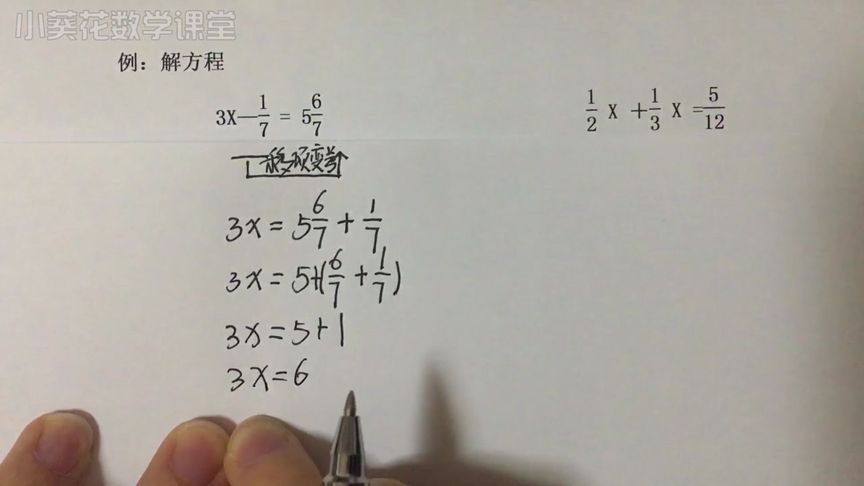 小葵花数学课堂
例：解方程
3X—1/7 = 5 6/7
1/2 X + 1/3 X = 5/12
移项变号
3x = 5 6/7 + 1/7
3x = 5+(6/7 + 1/7)
3x = 5+1
3x = 6